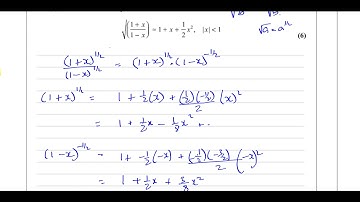 √((1+x)/(1−x)) ≈ 1 + x + 1/2 x², |x| < 1
√a = a^(1/2)
(6)
(1+x)^(1/2) / (1−x)^(1/2) = (1+x)^(1/2) · (1−x)^(−1/2)
(1+x)^(1/2) = 1 + 1/2(x) + (1/2)(−1/2)/2 (x)²
= 1 + 1/2 x − 1/8 x² ..
(1−x)^(−1/2) = 1 + −1/2(−x) + (−1/2)(−3/2)/2 (−x)²
= 1 + 1/2 x + 3/8 x²